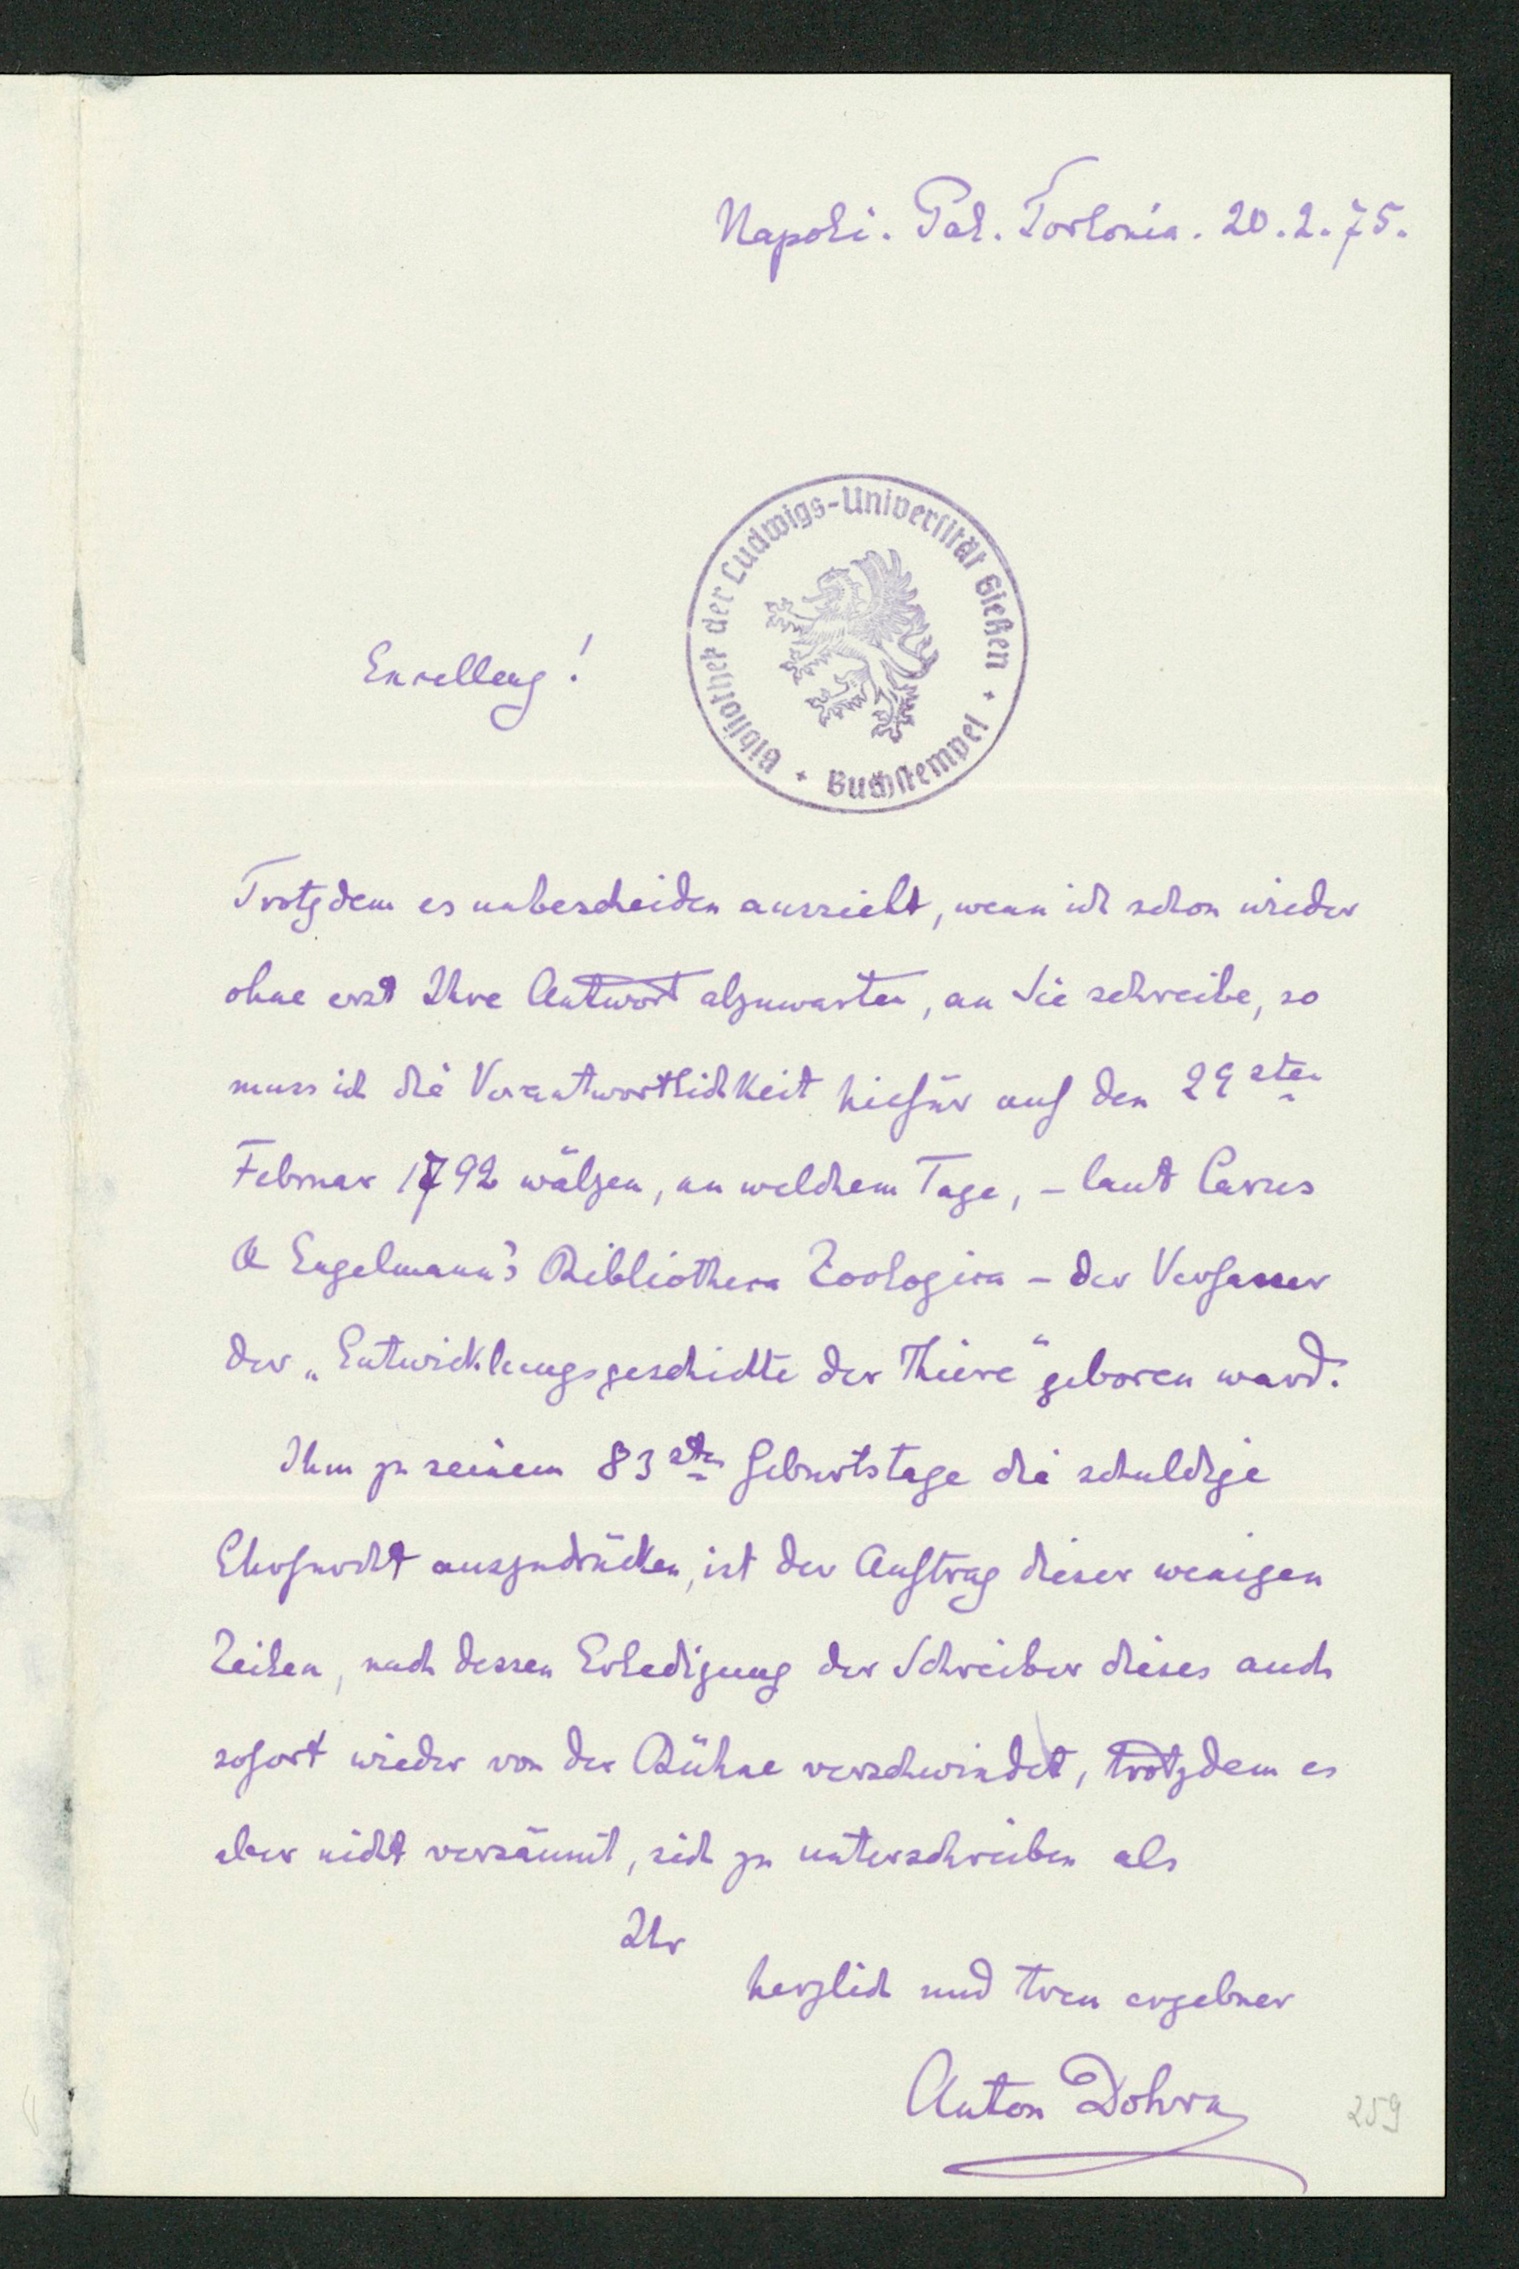 Napoli. Pal. Torlonia. 20.2.75.
Bibliothek der Ludwigs-Universität Gießen
Buchstempel
Excellenz!
Trotzdem es unbescheiden aussieht, wenn ich schon wieder
ohne erst Ihre Antwort abzuwarten, an Sie schreibe, so
muss ich die Verantwortlichkeit hiefür auf den 29sten
Februar 1792 wälzen, an welchem Tage, – laut Carus
& Engelmann's Bibliotheca Zoologica – der Verfasser
der „Entwicklungsgeschichte der Thiere“ geboren ward.
Ihm zu seinem 83sten Geburtstage die schuldige
Ehrfurcht auszudrücken, ist der Auftrag dieser wenigen
Zeilen, nach dessen Erledigung der Schreiber dieses auch
sofort wieder von der Bühne verschwindet, trotzdem es
aber nicht versäumt, sich zu unterschreiben als
Ihr
herzlich und treu ergebner
Anton Dohrn
259